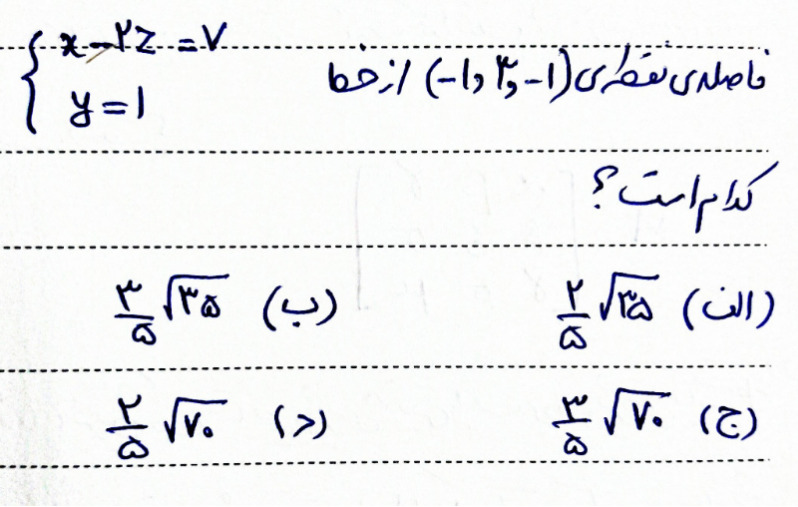 فاصله‌ی نقطه‌ی (-۱, ۳, -۱) از خط { x-۲z=۷
y=۱
کدام است؟
الف) ۲/۵ √۳۵ ب) ۳/۵ √۳۵
ج) ۳/۵ √۷۰ د) ۲/۵ √۷۰